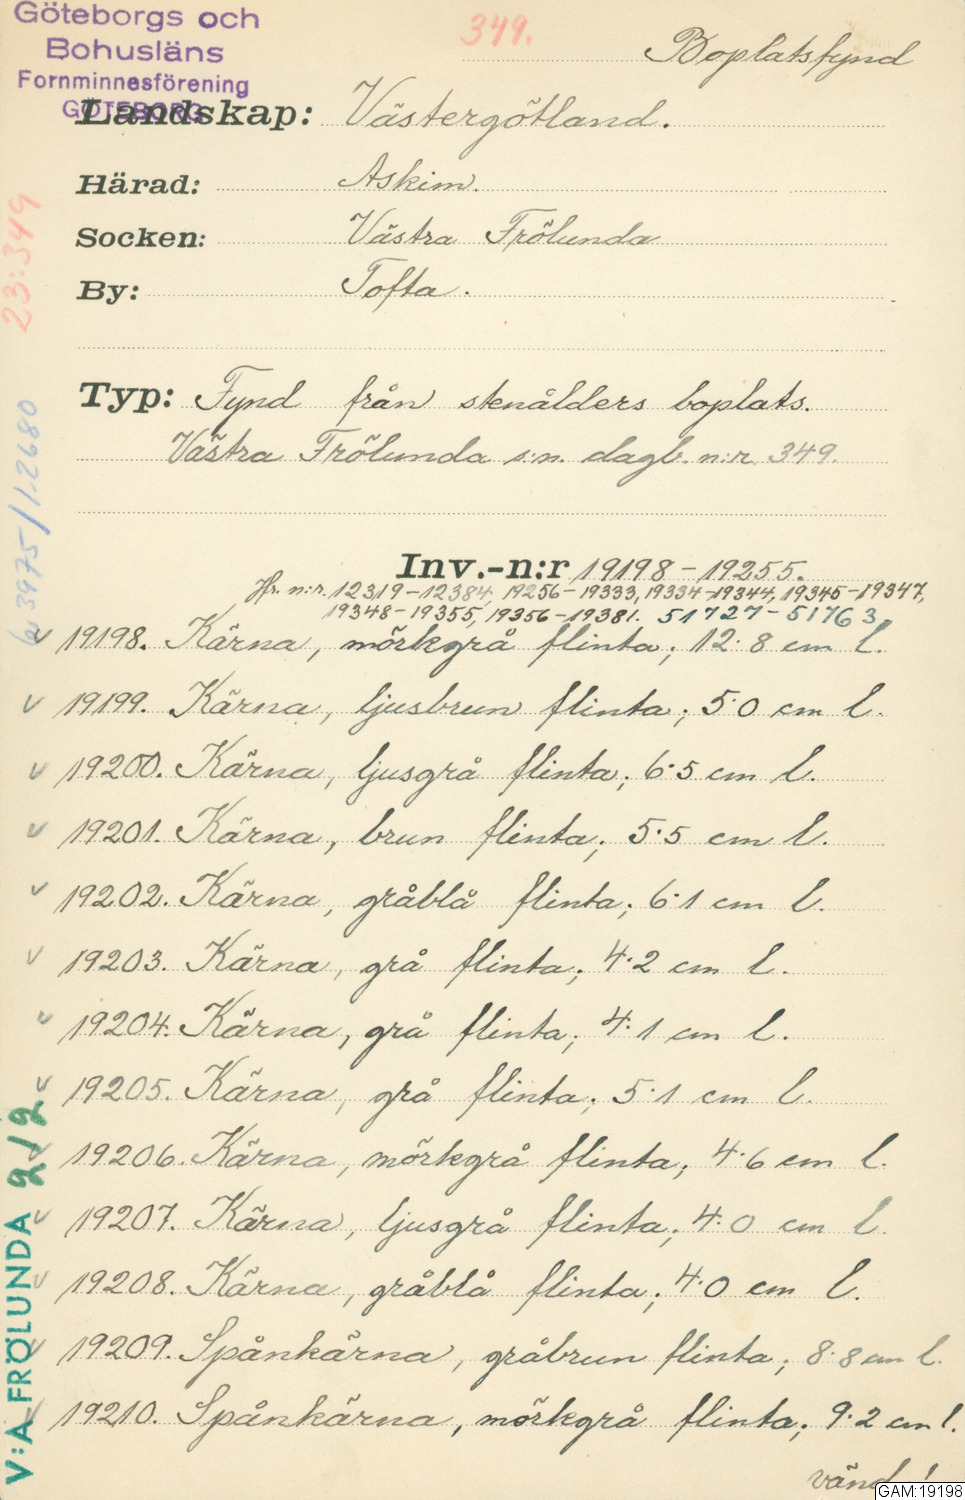 Göteborgs och
Bohusläns
Fornminnesförening
GÖTEBORG
349.
Boplatsfynd
Landskap: Västergötland.
Härad: Askim.
Socken: Västra Frölunda
By: Tofta.
23:349
Typ: Fynd från stenålders boplats.
Västra Frölunda s:n. dagb. n:r 349.
3975/1-2680
Inv.-n:r 19198-19255.
Jfr. n:r. 12319-12384, 19256-19333, 19334-19344, 19345-19347,
19348-19355, 19356-19381. 51727-51763,
v 19198. Kärna, mörkgrå flinta; 12·8 cm l.
v 19199. Kärna, ljusbrun flinta; 5·0 cm l.
v 19200. Kärna, ljusgrå flinta; 6·5 cm l.
v 19201. Kärna, brun flinta; 5·5 cm l.
v 19202. Kärna, gråblå flinta; 6·1 cm l.
v 19203. Kärna, grå flinta; 4·2 cm l.
v 19204. Kärna, grå flinta; 4·1 cm l.
v 19205. Kärna, grå flinta; 5·1 cm l.
v 19206. Kärna, mörkgrå flinta; 4·6 cm l.
v 19207. Kärna, ljusgrå flinta; 4·0 cm l.
v 19208. Kärna, gråblå flinta; 4·0 cm l.
v 19209. Spånkärna, gråbrun flinta; 8·8 cm l.
v 19210. Spånkärna, mörkgrå flinta; 9·2 cm l.
V:A FRÖLUNDA 212
vänd!
GAM:19198